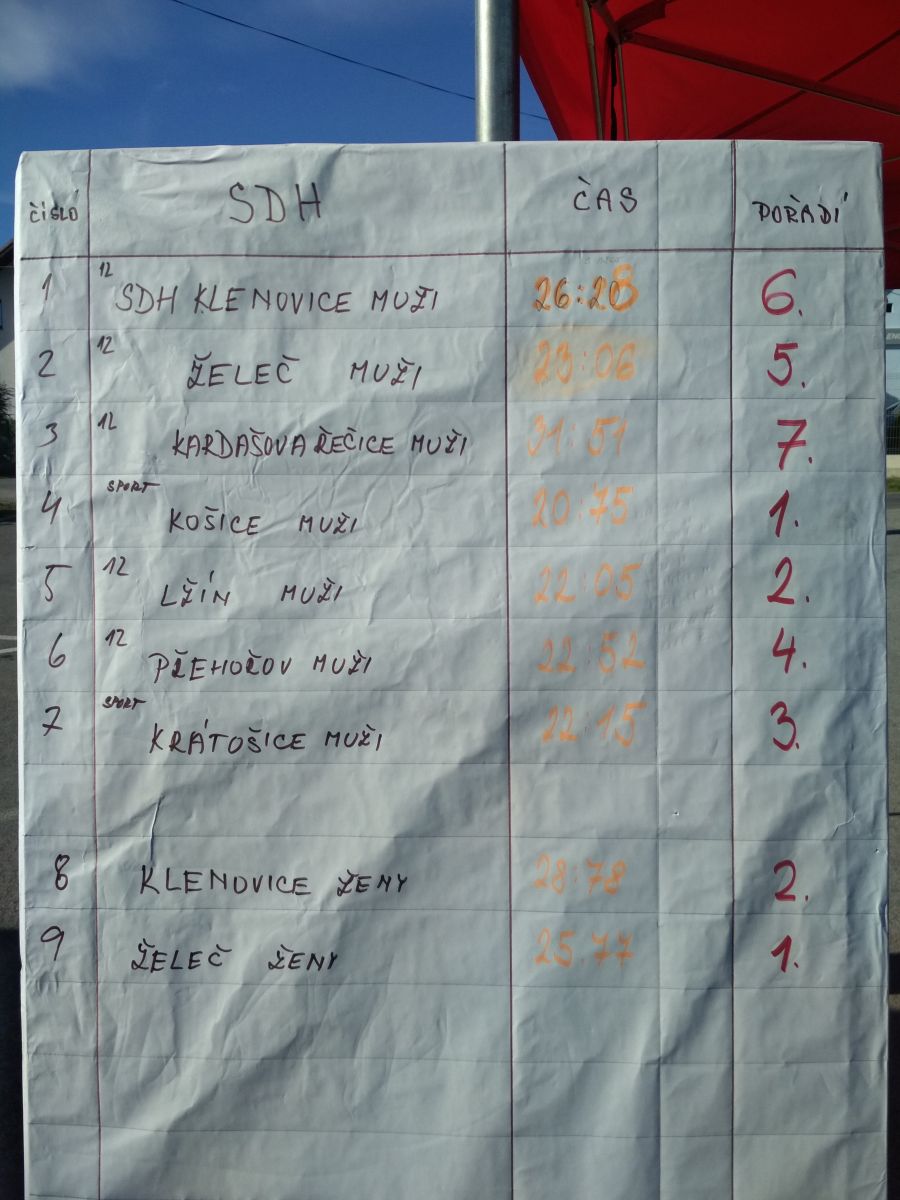 ČÍSLO SDH ČAS POŘADÍ
1 12 SDH KLENOVICE MUŽI 26:20 6.
2 12 ŽELEČ MUŽI 23:06 5.
3 12 KARDAŠOVA ŘEČICE MUŽI 31:51 7.
4 SPORT KOŠICE MUŽI 20:75 1.
5 12 LŽÍN MUŽI 22:05 2.
6 12 PŘEHOŘOV MUŽI 22:52 4.
7 SPORT KRÁTOŠICE MUŽI 22:15 3.
8 KLENOVICE ŽENY 28:78 2.
9 ŽELEČ ŽENY 25.77 1.